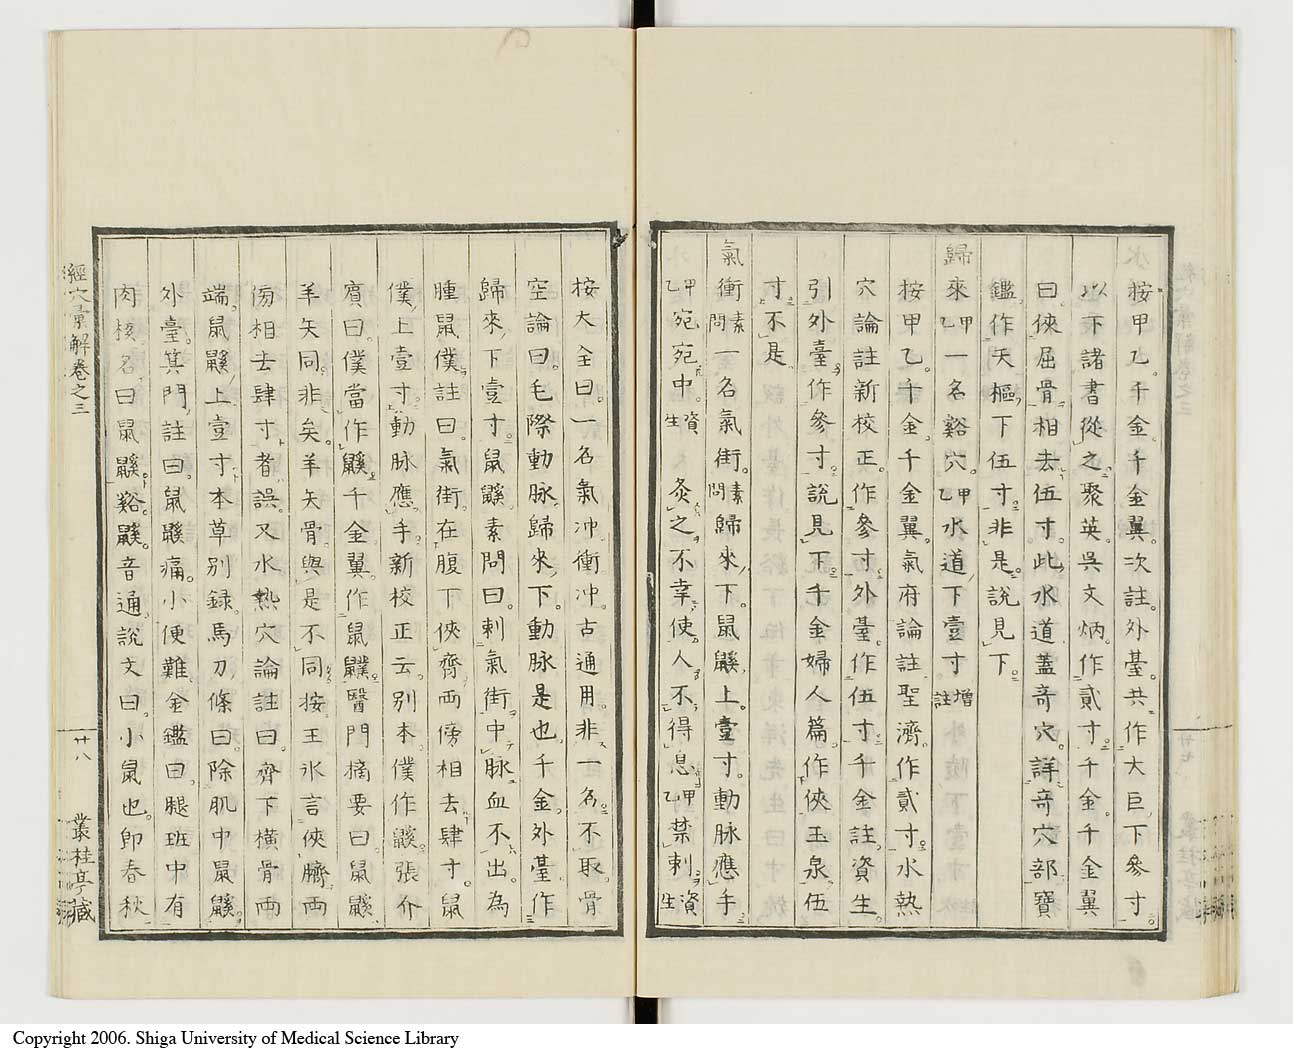 按甲乙千金千金翼次註外臺共作大巨下參寸
以下諸書從之聚英吳文炳作貳寸千金千金翼
曰俠屈骨相去伍寸此水道蓋奇穴詳奇穴部寶
鑑作天樞下伍寸非是說見下
歸來甲乙一名谿穴甲乙水道下壹寸增註
按甲乙千金千金翼氣府論註聖濟作貳寸水熱
穴論註新校正作參寸外臺作伍寸千金註資生
引外臺作參寸說見下千金婦人篇作俠玉泉伍
寸不是
氣衝素問一名氣街素問歸來下鼠鼷上壹寸動脉應手
甲乙宛宛中資生灸之不幸使人不得息甲乙禁刺資生
按大全曰一名氣冲衝冲古通用非一名不取骨
空論曰毛際動脉歸來下動脉是也千金外臺作
歸來下壹寸鼠鼷素問曰刺氣街中脉血不出為
腫鼠僕註曰氣街在腹下俠齊兩傍相去肆寸鼠
僕上壹寸動脉應手新校正云別本僕作鼷張介
賓曰僕當作鼷千金翼作鼠鼷醫門摘要曰鼠鼷
羊矢同非矣羊矢骨與是不同按王氷言俠臍兩
傍相去肆寸者誤又水熱穴論註曰齊下橫骨兩
端鼠鼷上壹寸本草別録馬刀條曰除肌中鼠鼷
外臺箕門註曰鼠鼷痛小便難金鑑曰腿班中有
肉核名曰鼠鼷谿鼷音通說文曰小鼠也即春秋
經穴彙解卷之三
廿八
叢桂亭藏
Copyright 2006. Shiga University of Medical Science Library